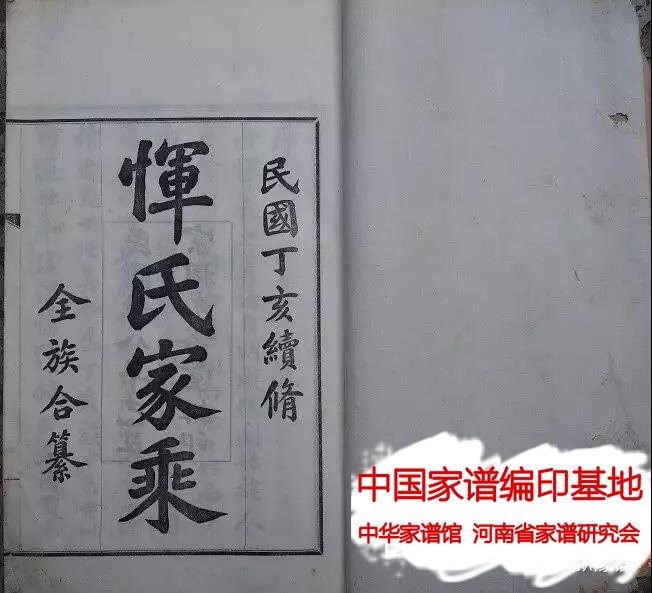 民國丁亥續脩
惲氏家乘
全族合纂
中国家谱编印基地
中华家谱馆 河南省家谱研究会